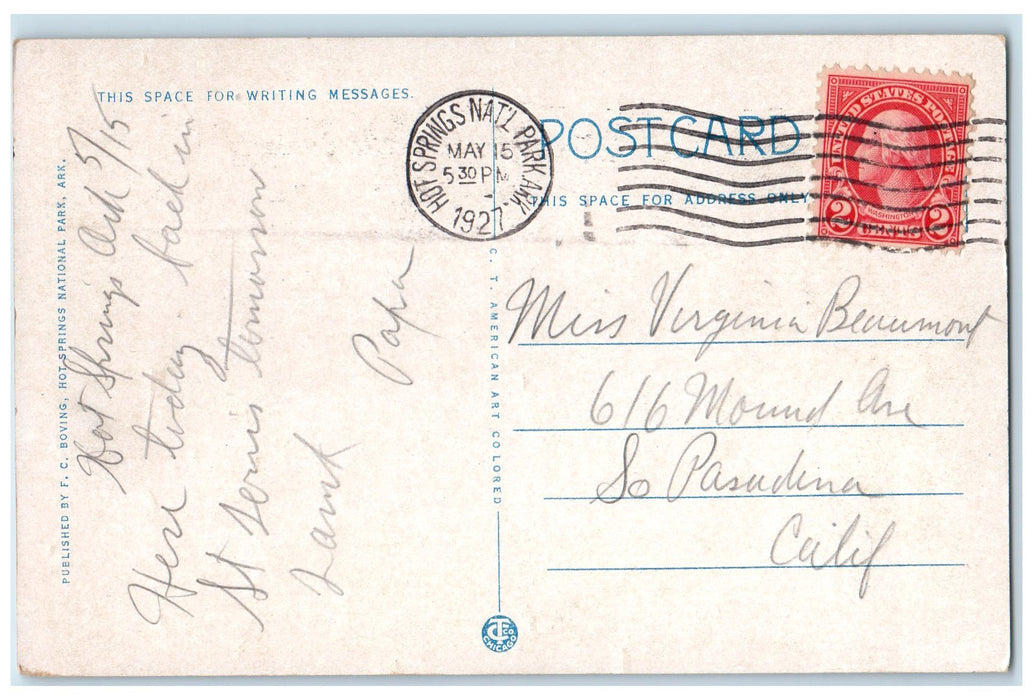 THIS SPACE FOR WRITING MESSAGES.
POSTCARD
THIS SPACE FOR ADDRESS ONLY
HOT SPRINGS NAT'L PARK, ARK.
MAY 15
5 30 PM
1927
UNITED STATES POSTAGE
WASHINGTON
2 CENTS 2
PUBLISHED BY F. C. BOVING, HOT SPRINGS NATIONAL PARK, ARK.
Hot Springs Ark 5/15
Here today - back in
St Louis tomorrow
Papa
C. T. AMERICAN ART COLORED
Miss Virginia Beaumont
616 Mound Ave
So Pasadena
Calif
CT CO
CHICAGO